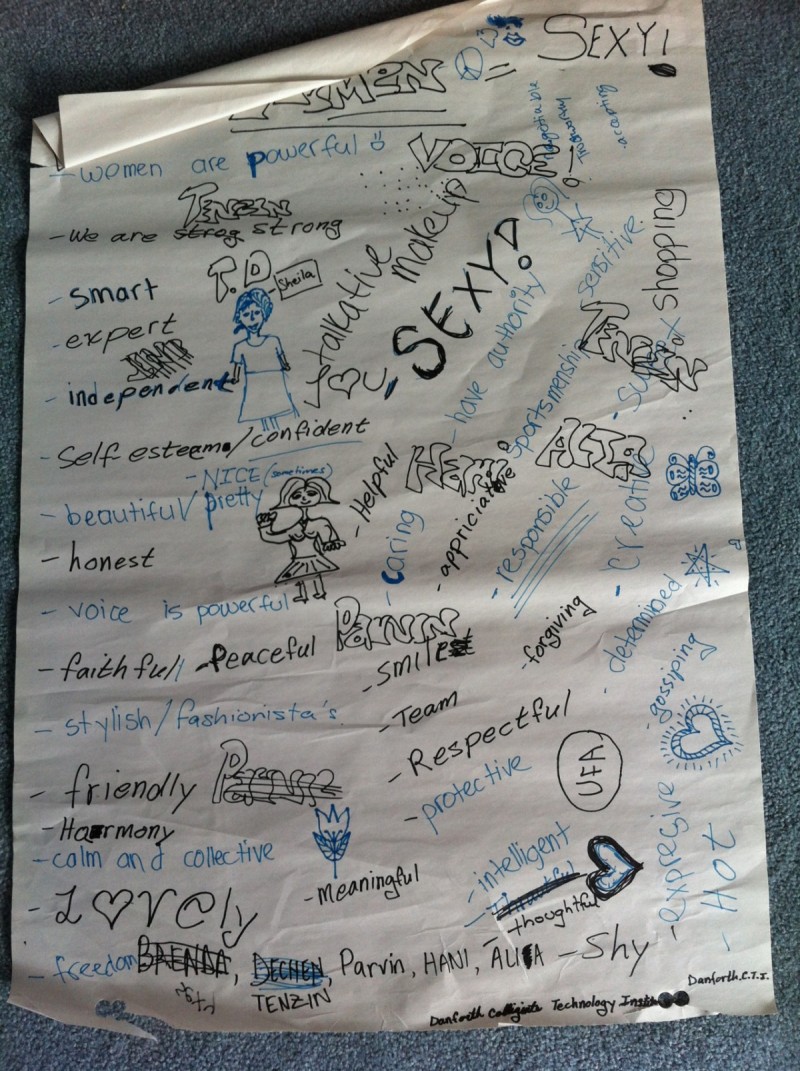 = SEXY!
women are powerful
VOICE
accepting
TENZIN
- We are strong
makeup
T.D
- smart
Sheila
talkative
SEXY!
sensitive
shopping
- expert
I ♡ U
- have authority
- independent
sportsmenship
- Self esteem / confident
- NICE (sometimes)
- beautiful / pretty
- Helpful
HANI
ALIA
- caring
- appriciative
- responsible
- creative
- honest
- voice is powerful
PARVIN
- forgiving
- determined
- faithful / - Peaceful
- SMILE
- gossiping
- stylish / fashionista's
- Team
- Respectful
- friendly
- protective
UFA
- Harmony
- calm and collective
- intelligent
- meaningful
- expresive
- 2011 -
- L♡Vely
- thoughtful
- freedom
BRENDA, DECHEN, Parvin, HANI, ALIA
- Shy
TENZIN
Danforth.C.T.I.
Danforth Collegiate Technology